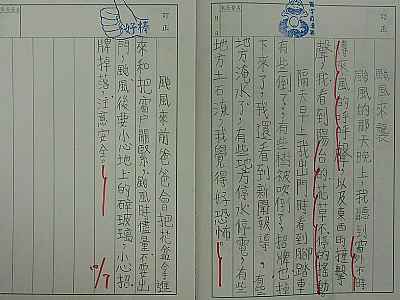 颱風來襲
颱風的那天晚上，我聽到窗外時
傳來風的呼呼聲，以及東西的撞擊
聲，我看到陽台的花草不停的搖動
隔天早上我出門時看到腳踏車
有些倒了，有些樹被吹倒了，招牌也掉
下來了，我還看到新聞報導，有些
地方淹水了，有些地方停水停電，有些
地方土石流，我覺得好恐怖
颱風來前爸爸會把花盆拿進
來和把窗戶關緊，颱風時儘量不要出
門，颱風後要小心地上的碎玻璃，小心招
牌掉落，注意安全。
好棒